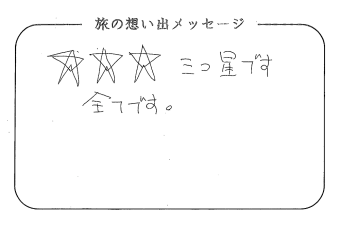 旅の想い出メッセージ
☆☆☆ 三つ星です
全てです。